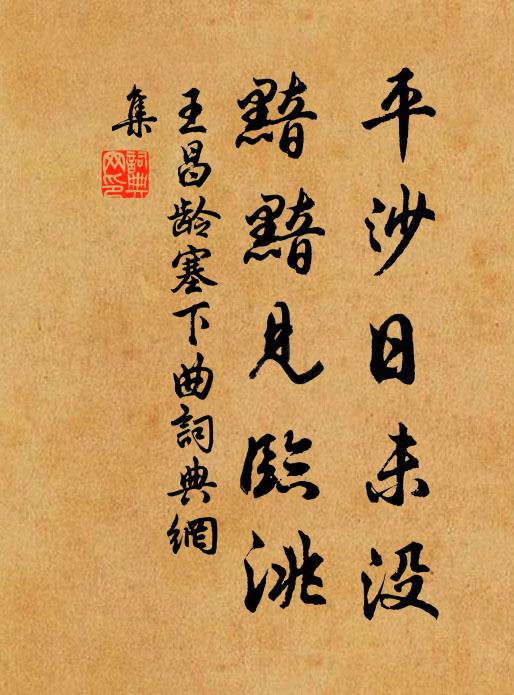 平沙日未没
黯黯見臨洮
王昌龄塞下曲詞典網
集
詞典
网印